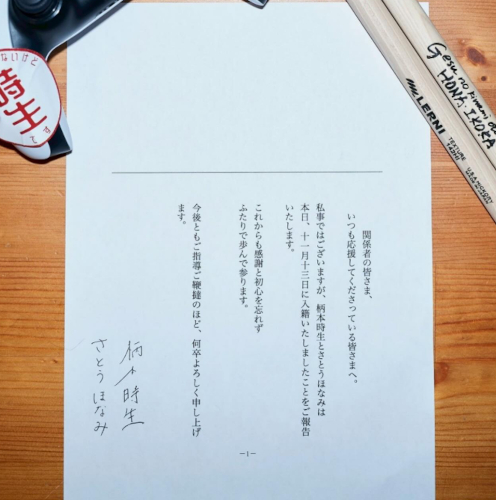 関係者の皆さま、
いつも応援してくださっている皆さまへ。
私事ではございますが、柄本時生とさとうほなみは
本日、十一月十三日に入籍いたしましたことをご報告
いたします。
これからも感謝と初心を忘れず
ふたりで歩んで参ります。
今後ともご指導ご鞭撻のほど、何卒よろしく申し上げ
ます。
柄本時生
さとうほなみ
—1—
ないけど
時生
です
Gesu no Kiwami
HONA. IKOKA
LERNI
TEXTURE